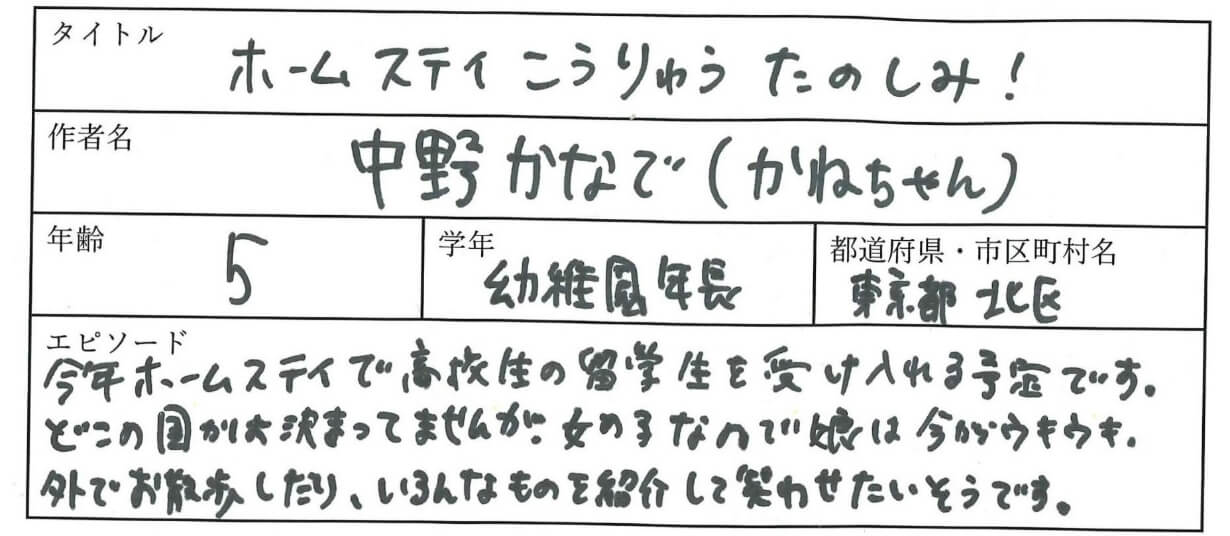 タイトル
ホームステイこうりゅう たのしみ!
作者名
中野 かなで(かねちゃん)
年齢
5
学年
幼稚園年長
都道府県・市区町村名
東京都 北区
エピソード
今年ホームステイで高校生の留学生を受け入れる予定です。
どこの国かは決まってませんが、女の子なので娘は今からウキウキ。
外でお散歩したり、いろんなものを紹介して笑わせたいそうです。